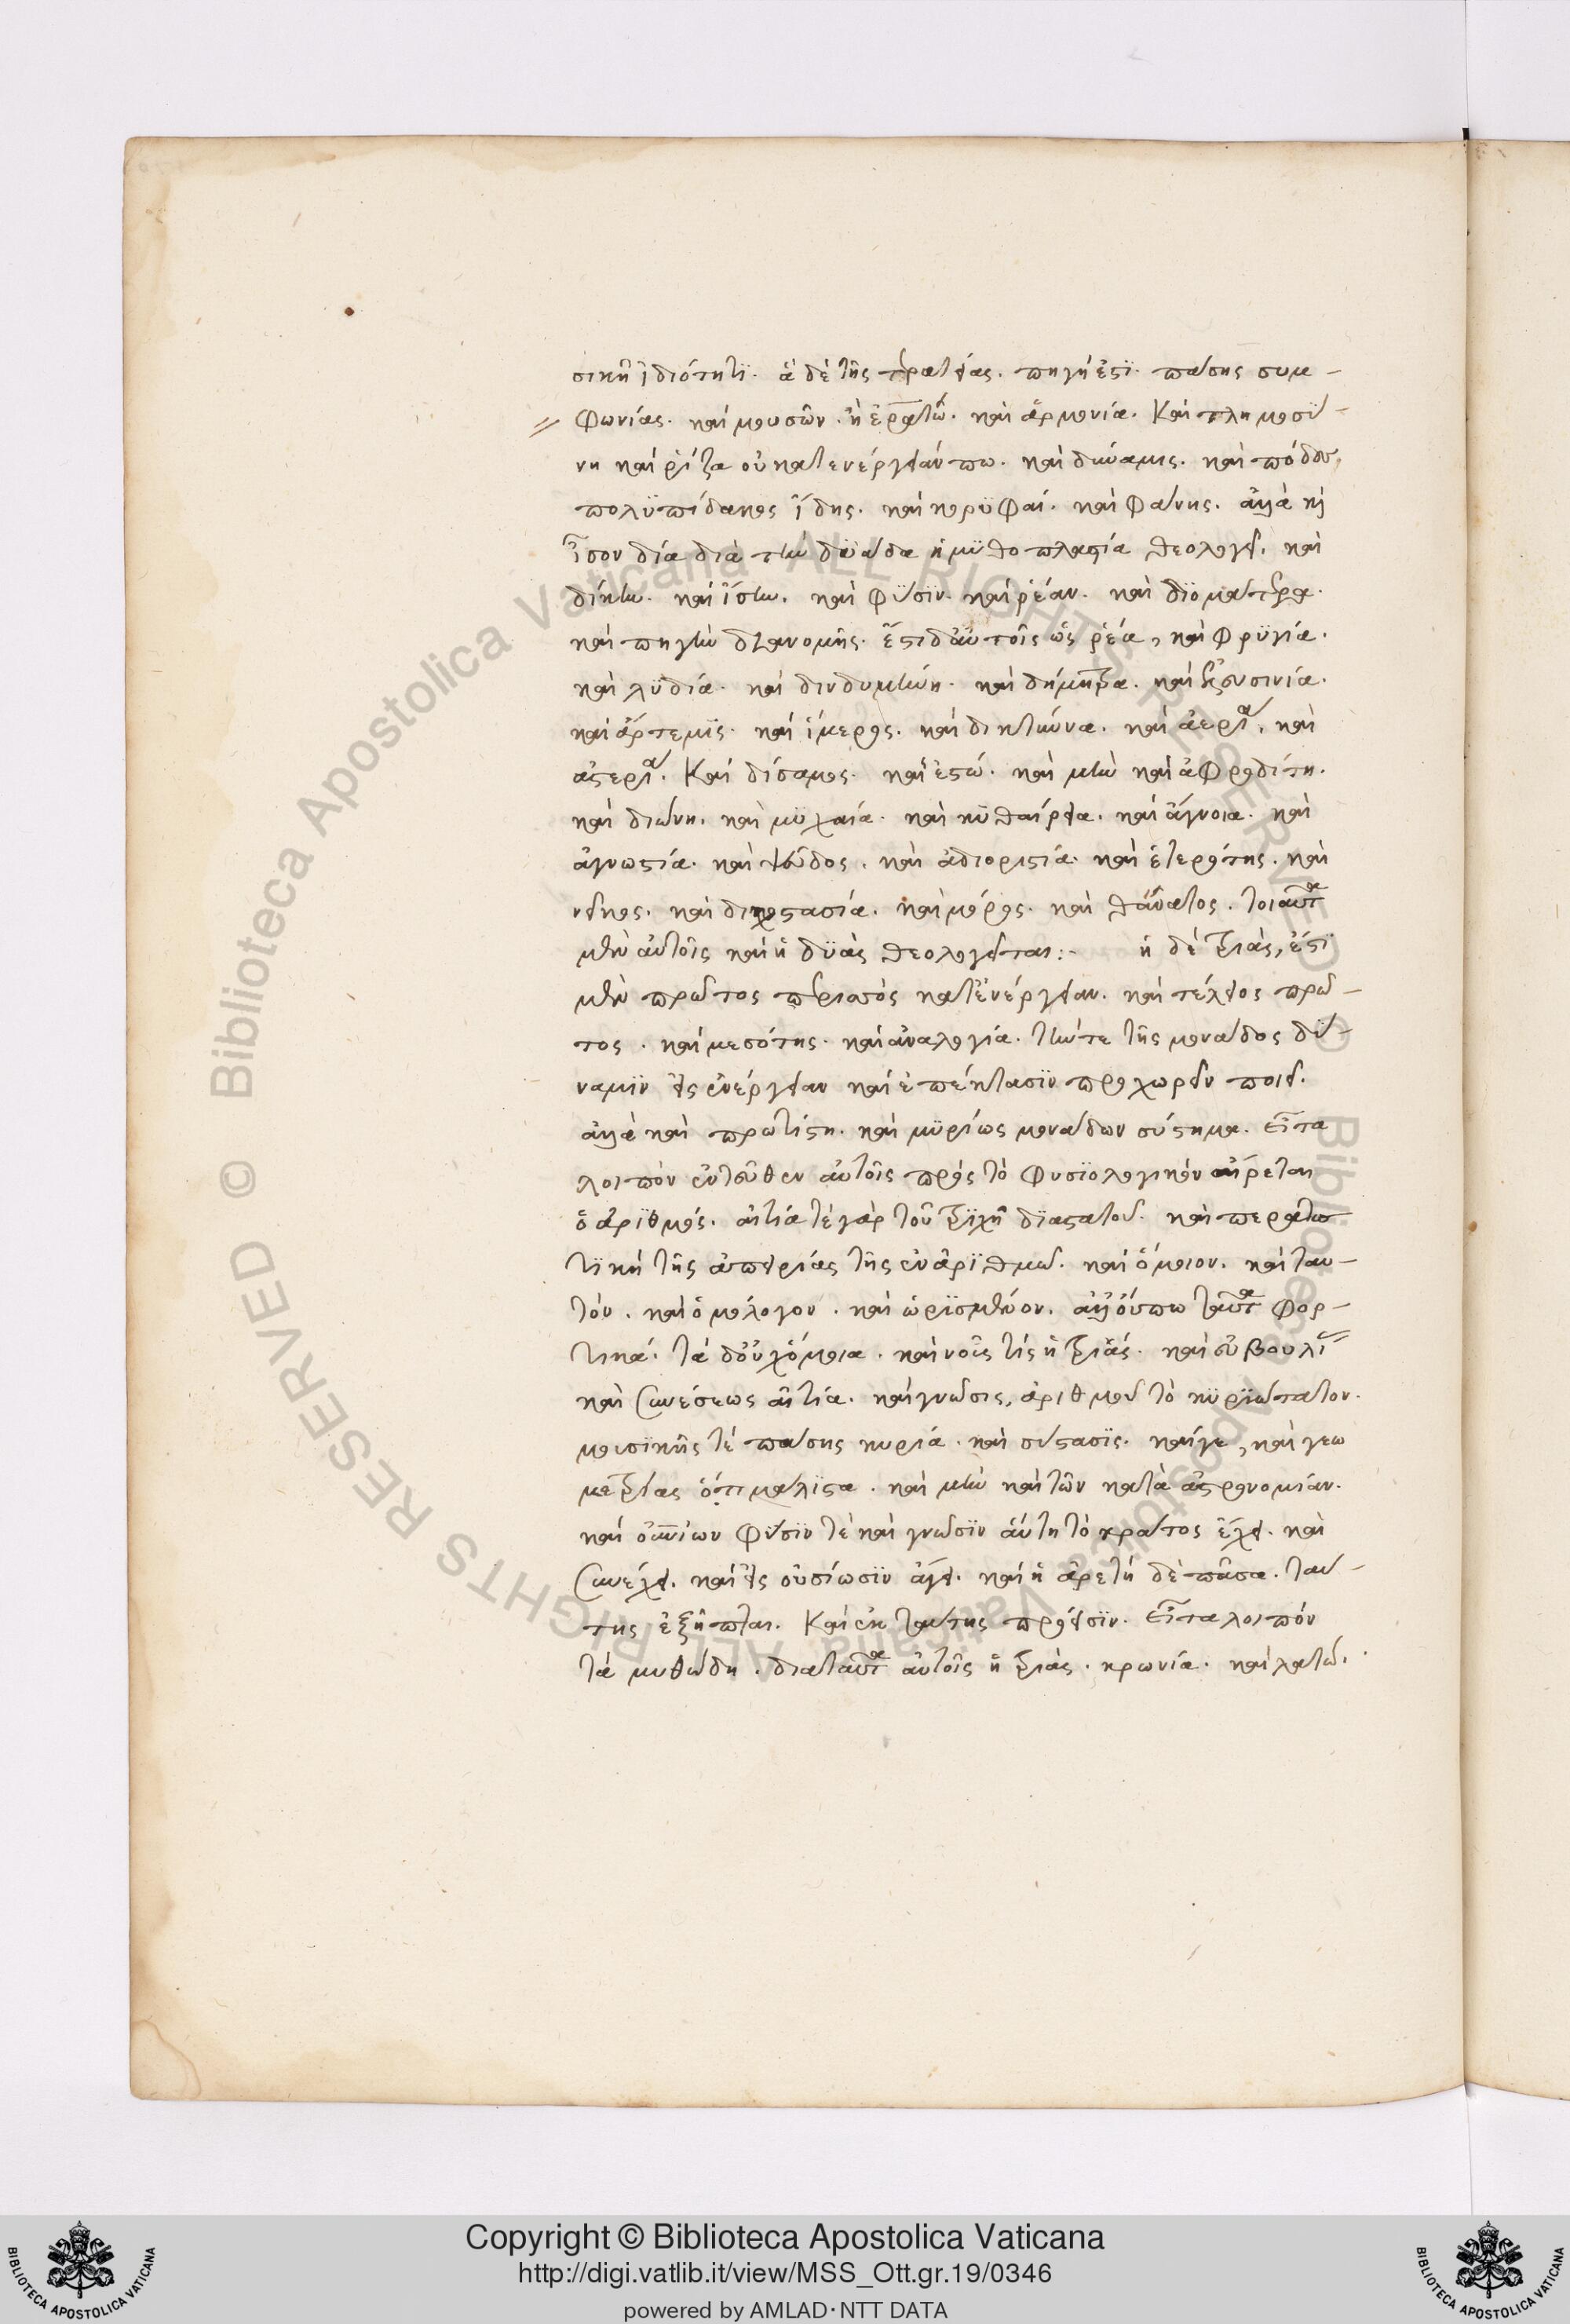 σικῆ ἰδιότητι. ἃ δὲ τῆς πρατείας. πηγή ἐστι. πάσης συμ-
φωνίας. καὶ μουσῶν. ἡ ἐρατὼ. καὶ ἁρμονία. καὶ τλημοσύ-
νη καὶ ῥίζα οὐ κατ ενέργειάν πω. καὶ δύναμις. καὶ πόδου,
πολυπίδακος ἴδης. καὶ κορυφαί. καὶ φάνης. ἀλλὰ κὴ
ἴσον δία διὰ τὴν δυάδα ἡ μυθοπλαστία θεολογεῖ. καὶ
δίκην. καὶ ἴσιν. καὶ φύσιν. καὶ ῥέαν. καὶ διομάτερα.
καὶ πηγὴν διανομῆς. ἔστι δ αὐτοῖς ὡς ῥέα, καὶ φρυγία.
καὶ λυδία. καὶ δινδυμήνη. καὶ δήμητρα. καὶ ἐλευσινία.
καὶ ἄρτεμις. καὶ ἵμερος. καὶ δικτύννα. καὶ ἀερία. καὶ
ἀστερία. καὶ δίσαμος. καὶ ἐστώ. καὶ μὴν καὶ ἀφροδίτη.
καὶ διώνη. καὶ μυχαία. καὶ κυθαίρεια. καὶ ἄγνοια. καὶ
ἀγνωσία. καὶ ψεῦδος. καὶ ἀδιοριστία. καὶ ἑτερότης. καὶ
νεῖκος. καὶ διχοστασία. καὶ μόρος. καὶ θάνατος. τοιαῦτα
μὲν αὐτοῖς καὶ ἡ δυὰς θεολογεῖται:- ἡ δὲ τριὰς, ἔστι
μὲν πρῶτος περισσὸς κατ ἐνέργειαν. καὶ τέλειος πρῶ-
τος. καὶ μεσότης. καὶ ἀναλογία. τήν τε τῆς μονάδος δύ-
ναμιν εἰς ἐνέργειαν καὶ ἐπέκτασιν προχωρεῖν ποιεῖ.
ἀλλὰ καὶ πρωτίστη. καὶ μυρίως μονάδων σύστημα. εἶτα
λοιπὸν ἐντεῦθεν αὐτοῖς πρὸς τὸ φυσιολογικὸν αἴρεται
ὁ ἀριθμός. αἰτία τὲ γὰρ τοῦ τριχῆ διαστατοῦ. καὶ περατω
τικὴ τῆς ἀπειρίας τῆς ἐν ἀριθμῶ. καὶ ὅμοιον. καὶ ταυ-
τόν. καὶ ὁμόλογον. καὶ ὡρισμένον. ἀλλ οὔπω ταῦτα φορ-
τικά. τὰ δ οὐχ ὅμοια. καὶ νοῦς τίς ἡ τριάς. καὶ εὐβουλί
καὶ συνέσεως αἰτία. καὶ γνῶσις, ἀριθμοῦ τὸ κυριώτατον.
μουσικῆς τὲ πάσης κυρία. καὶ σύστασις. καί γε, καὶ γεω
μετρίας ὅτι μάλιστα. καὶ μὴν καὶ τῶν κατὰ ἀστρονομίαν.
καὶ οὐρανίων φύσιν τὲ καὶ γνῶσιν αὕτη τὸ κράτος ἔχει. καὶ
συνέχει. καὶ εἰς οὐσίωσιν ἄγει. καὶ ἡ ἀρετὴ δὲ πᾶσα. ταύ-
της ἐξῆπται. καὶ ἐκ ταύτης πρόεισιν. εἶτα λοιπόν
τὰ μυθώδη. διαταῦτα αὐτοῖς ἡ τριὰς. κρωνία. καὶ λατώ.